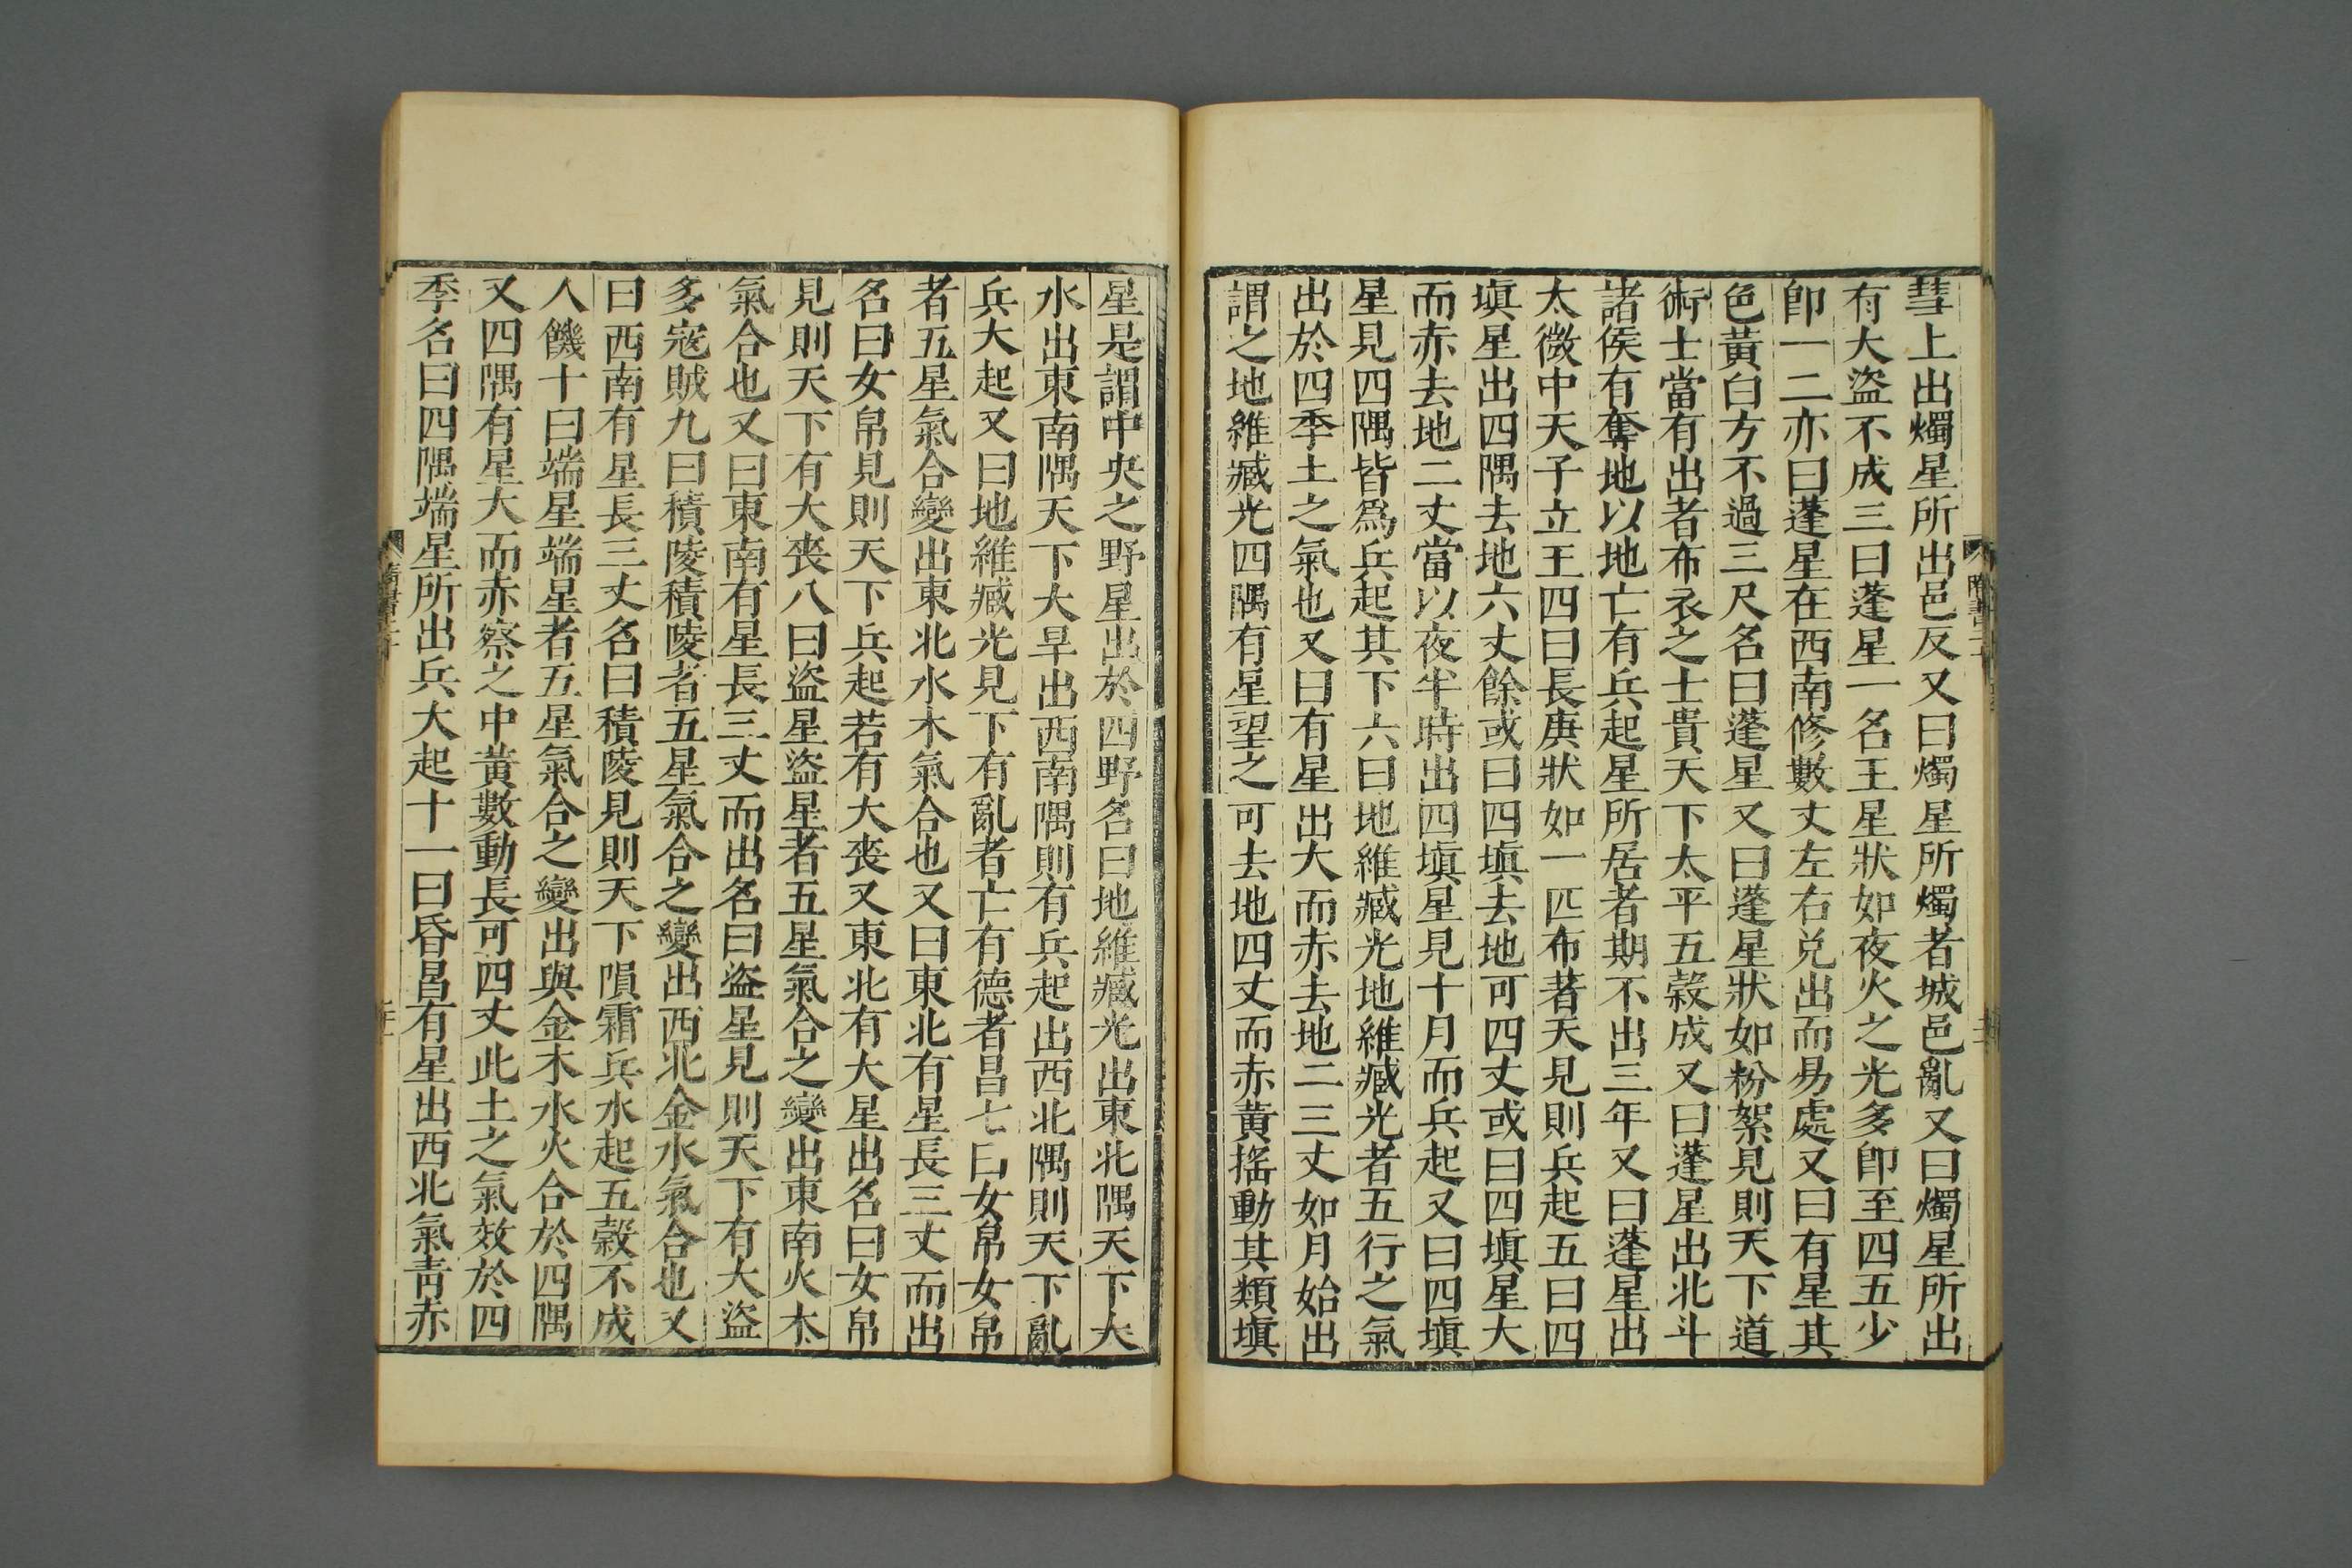 彗上出燭星所出邑反又曰燭星所燭者城邑亂又曰燭星所出
有大盜不成三曰蓬星一名王星狀如夜火之光多卽至四五少
卽一二亦曰蓬星在西南修數丈左右兌出而易處又曰有星其
色黃白方不過三尺名曰蓬星又曰蓬星狀如粉絮見則天下道
術士當有出者布衣之士貴天下太平五穀成又曰蓬星出北斗
諸侯有奪地以地亡有兵起星所居者期不出三年又曰蓬星出
太微中天子立王四曰長庚狀如一匹布著天見則兵起五曰四
塡星出四隅去地六丈餘或曰四塡去地可四丈或曰四塡星大
而赤去地二丈當以夜半時出四塡星見十月而兵起又曰四塡
星見四隅皆爲兵起其下六曰地維臧光地維臧光者五行之氣
出於四季土之氣也又曰有星出大而赤去地二三丈如月始出
謂之地維臧光四隅有星望之可去地四丈而赤黃搖動其類塡
星是謂中央之野星出於四野名曰地維臧光出東北隅天下大
水出東南隅天下大旱出西南隅則有兵起出西北隅則天下亂
兵大起又曰地維臧光見下有亂者亡有德者昌七曰女帛女帛
者五星氣合變出東北水木氣合也又曰東北有星長三丈而出
名曰女帛見則天下兵起若有大喪又東北有大星出名曰女帛
見則天下有大喪八曰盜星盜星者五星氣合之變出東南火木
氣合也又曰東南有星長三丈而出名曰盜星見則天下有大盜
多寇賊九曰積陵積陵者五星氣合之變出西北金水氣合也又
曰西南有星長三丈名曰積陵見則天下隕霜兵水起五穀不成
人饑十曰端星端星者五星氣合之變出與金木水火合於四隅
又四隅有星大而赤察之中黃數動長可四丈此土之氣效於四
季名曰四隅端星所出兵大起十一曰昏昌有星出西北氣青赤